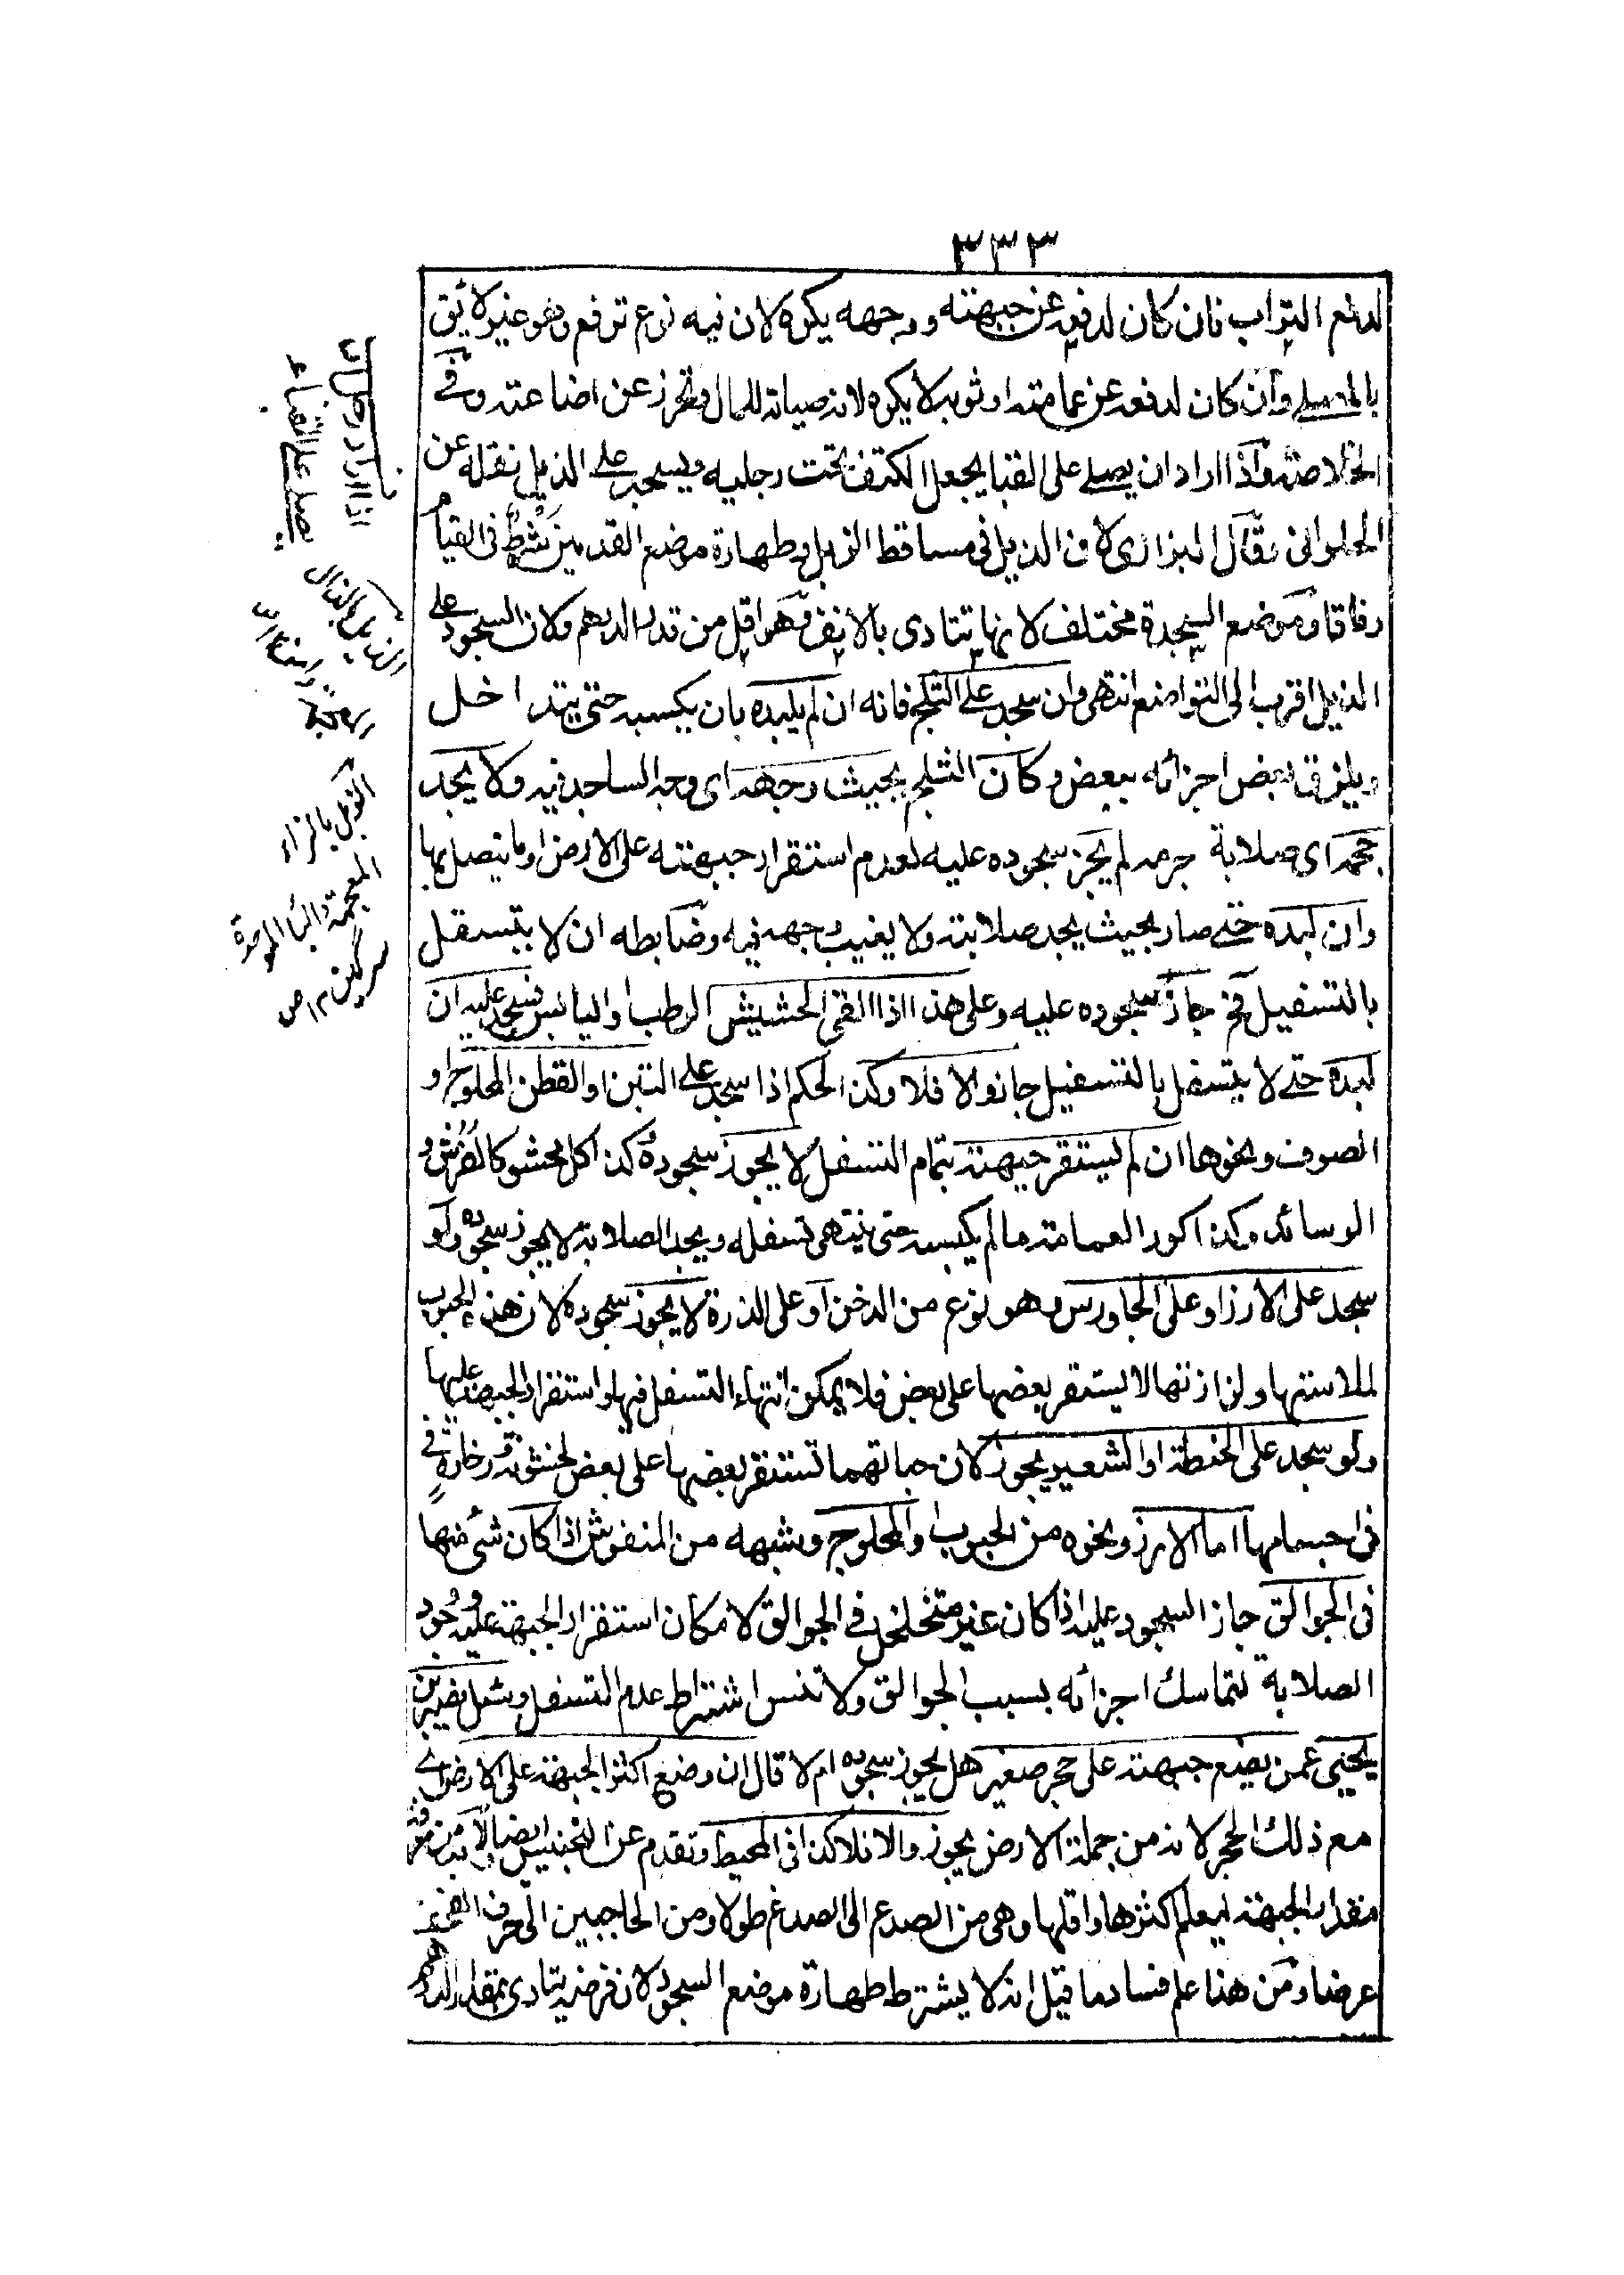 ٣٣٣
لدفع التراب فان كان لدفعه عن جبهته ووجهه يكره لان فيه نوع ترفع وهو غير لائق
بالمصلي وان كان لدفعه عن عمامته او ثوبه لا يكره لانه صيانة للمال وتحرز عن اضاعته وفي
الخلاصة واذا اراد ان يصلي على القبا يجعل الكتف تحت رجليه ويسجد على الذيل نقله عن
الحلواني وقال البزازي لان الذيل في مساقط الزبل وطهارة موضع القدمين شرط في القيام
وفاقا وموضع السجدة مختلف لانها تتادى بالانف وهو اقل من قدر الدرهم ولان السجود على
الذيل اقرب الى التواضع انتهى وان سجد على الثلج فانه ان لم يلبده بان يكبسه حتى يتداخل
ويلزق بعض اجزائه ببعض وكان الثلج بحيث وجهه اى وجه الساجد فيه ولا يجد
حجمه اى صلابة جرمه لم يجز سجوده عليه لعدم استقرار جبهته على الارض او ما يتصل بها
وان لبده حتى صار بحيث يجد صلابته ولا يغيب وجهه فيه وضابطه ان لا يتسفل
بالتسفيل فح جاز سجوده عليه وعلى هذا اذا القى الحشيش الرطب او اليابس فسجد عليه ان
لبده حتى لا يتسفل بالتسفيل جاز والا فلا وكذا الحكم اذا سجد على التبن او القطن المحلوج او
الصوف ونحوها ان لم يستقر جبهته بتمام التسفل لا يجوز سجوده كذا كل محشو كالفرش و
الوسائد وكذا كور العمامة ما لم يكبسه حتى ينتهى تسفله ويجد الصلابة لا يجوز سجوده ولو
سجد على الارز او على الجاورس وهو نوع من الدخن او على الذرة لا يجوز سجوده لان هذه الحبوب
لملاستها ولزازتها لا يستقر بعضها على بعض فلا يمكن انتهاء التسفل فيها واستقرار الجبهة عليها
ولو سجد على الحنطة او الشعير يجوز لان حباتهما تستقر بعضها على بعض لخشونة ورخاوة في
في اجسامها اما الارز ونحوه من الحبوب والمحلوج وشبهه من المنفوش اذا كان شئ منها
في الجوالق جاز السجود عليه اذا كان غير متخلخل في الجوالق لامكان استقرار الجبهة عليه ووجود
الصلابة لتماسك اجزائه بسبب الجوالق ولا تنس اشتراط عدم التسفل وسئل نصير بن
يحيى عمن يضع جبهته على حجر صغير هل يجوز سجوده ام لا قال ان وضع اكثر الجبهة على الارض اى
مع ذلك الحجر لانه من جملة الارض يجوز والا فلا كذا في المحيط وتقدم عن التجنيس ايضا لا بد من معرفة
مقدار الجبهة ليعلم اكثرها واقلها وهى من الصدغ الى الصدغ طولا ومن الحاجبين الى
عرضا ومن هذا علم فساد ما قيل انه لا يشترط طهارة موضع السجود لان فرضه يتادى بمقدار الدرهم
اذا اراد رجل ان
يصلي على القباء
الزبل بالزاء
المعجمة والباء الموحدة
سركين ١٢ ص